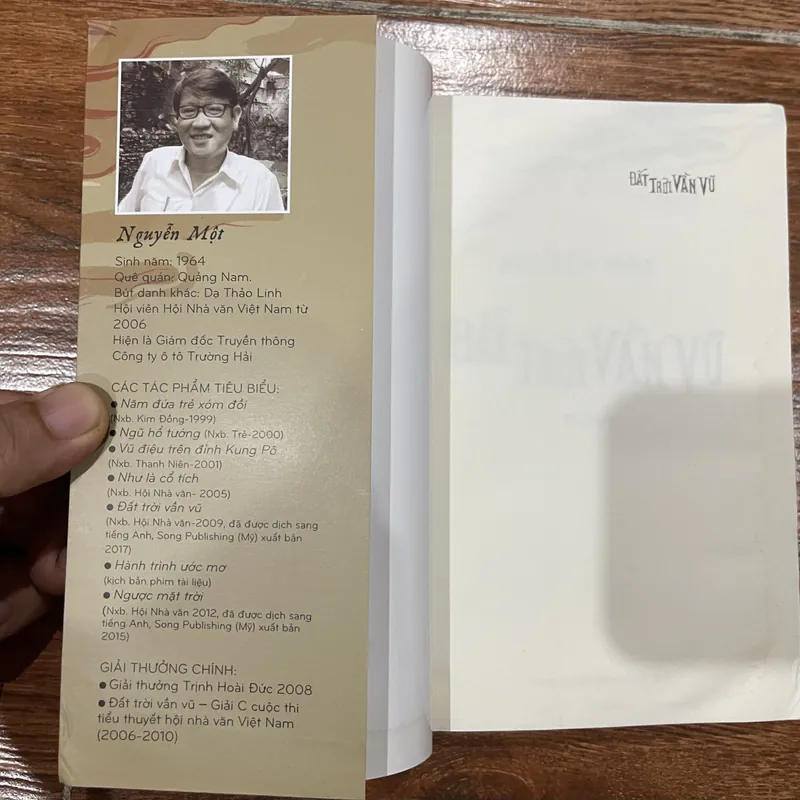 Nguyễn Một
Sinh năm: 1964
Quê quán: Quảng Nam.
Bút danh khác: Dạ Thảo Linh
Hội viên Hội Nhà văn Việt Nam từ
2006
Hiện là Giám đốc Truyền thông
Công ty ô tô Trường Hải
CÁC TÁC PHẨM TIÊU BIỂU:
● Năm đứa trẻ xóm đồi
(Nxb. Kim Đồng-1999)
● Ngũ hổ tướng (Nxb. Trẻ-2000)
● Vũ điệu trên đỉnh Kung Pô
(Nxb. Thanh Niên-2001)
● Như là cổ tích
(Nxb. Hội Nhà văn- 2005)
● Đất trời vần vũ
(Nxb. Hội Nhà văn-2009, đã được dịch sang
tiếng Anh, Song Publishing (Mỹ) xuất bản
2017)
● Hành trình ước mơ
(kịch bản phim tài liệu)
● Ngược mặt trời
(Nxb. Hội Nhà văn 2012, đã được dịch sang
tiếng Anh, Song Publishing (Mỹ) xuất bản
2015)
GIẢI THƯỞNG CHÍNH:
● Giải thưởng Trịnh Hoài Đức 2008
● Đất trời vần vũ – Giải C cuộc thi
tiểu thuyết hội nhà văn Việt Nam
(2006-2010)
ĐẤT TRỜI VẦN VŨ